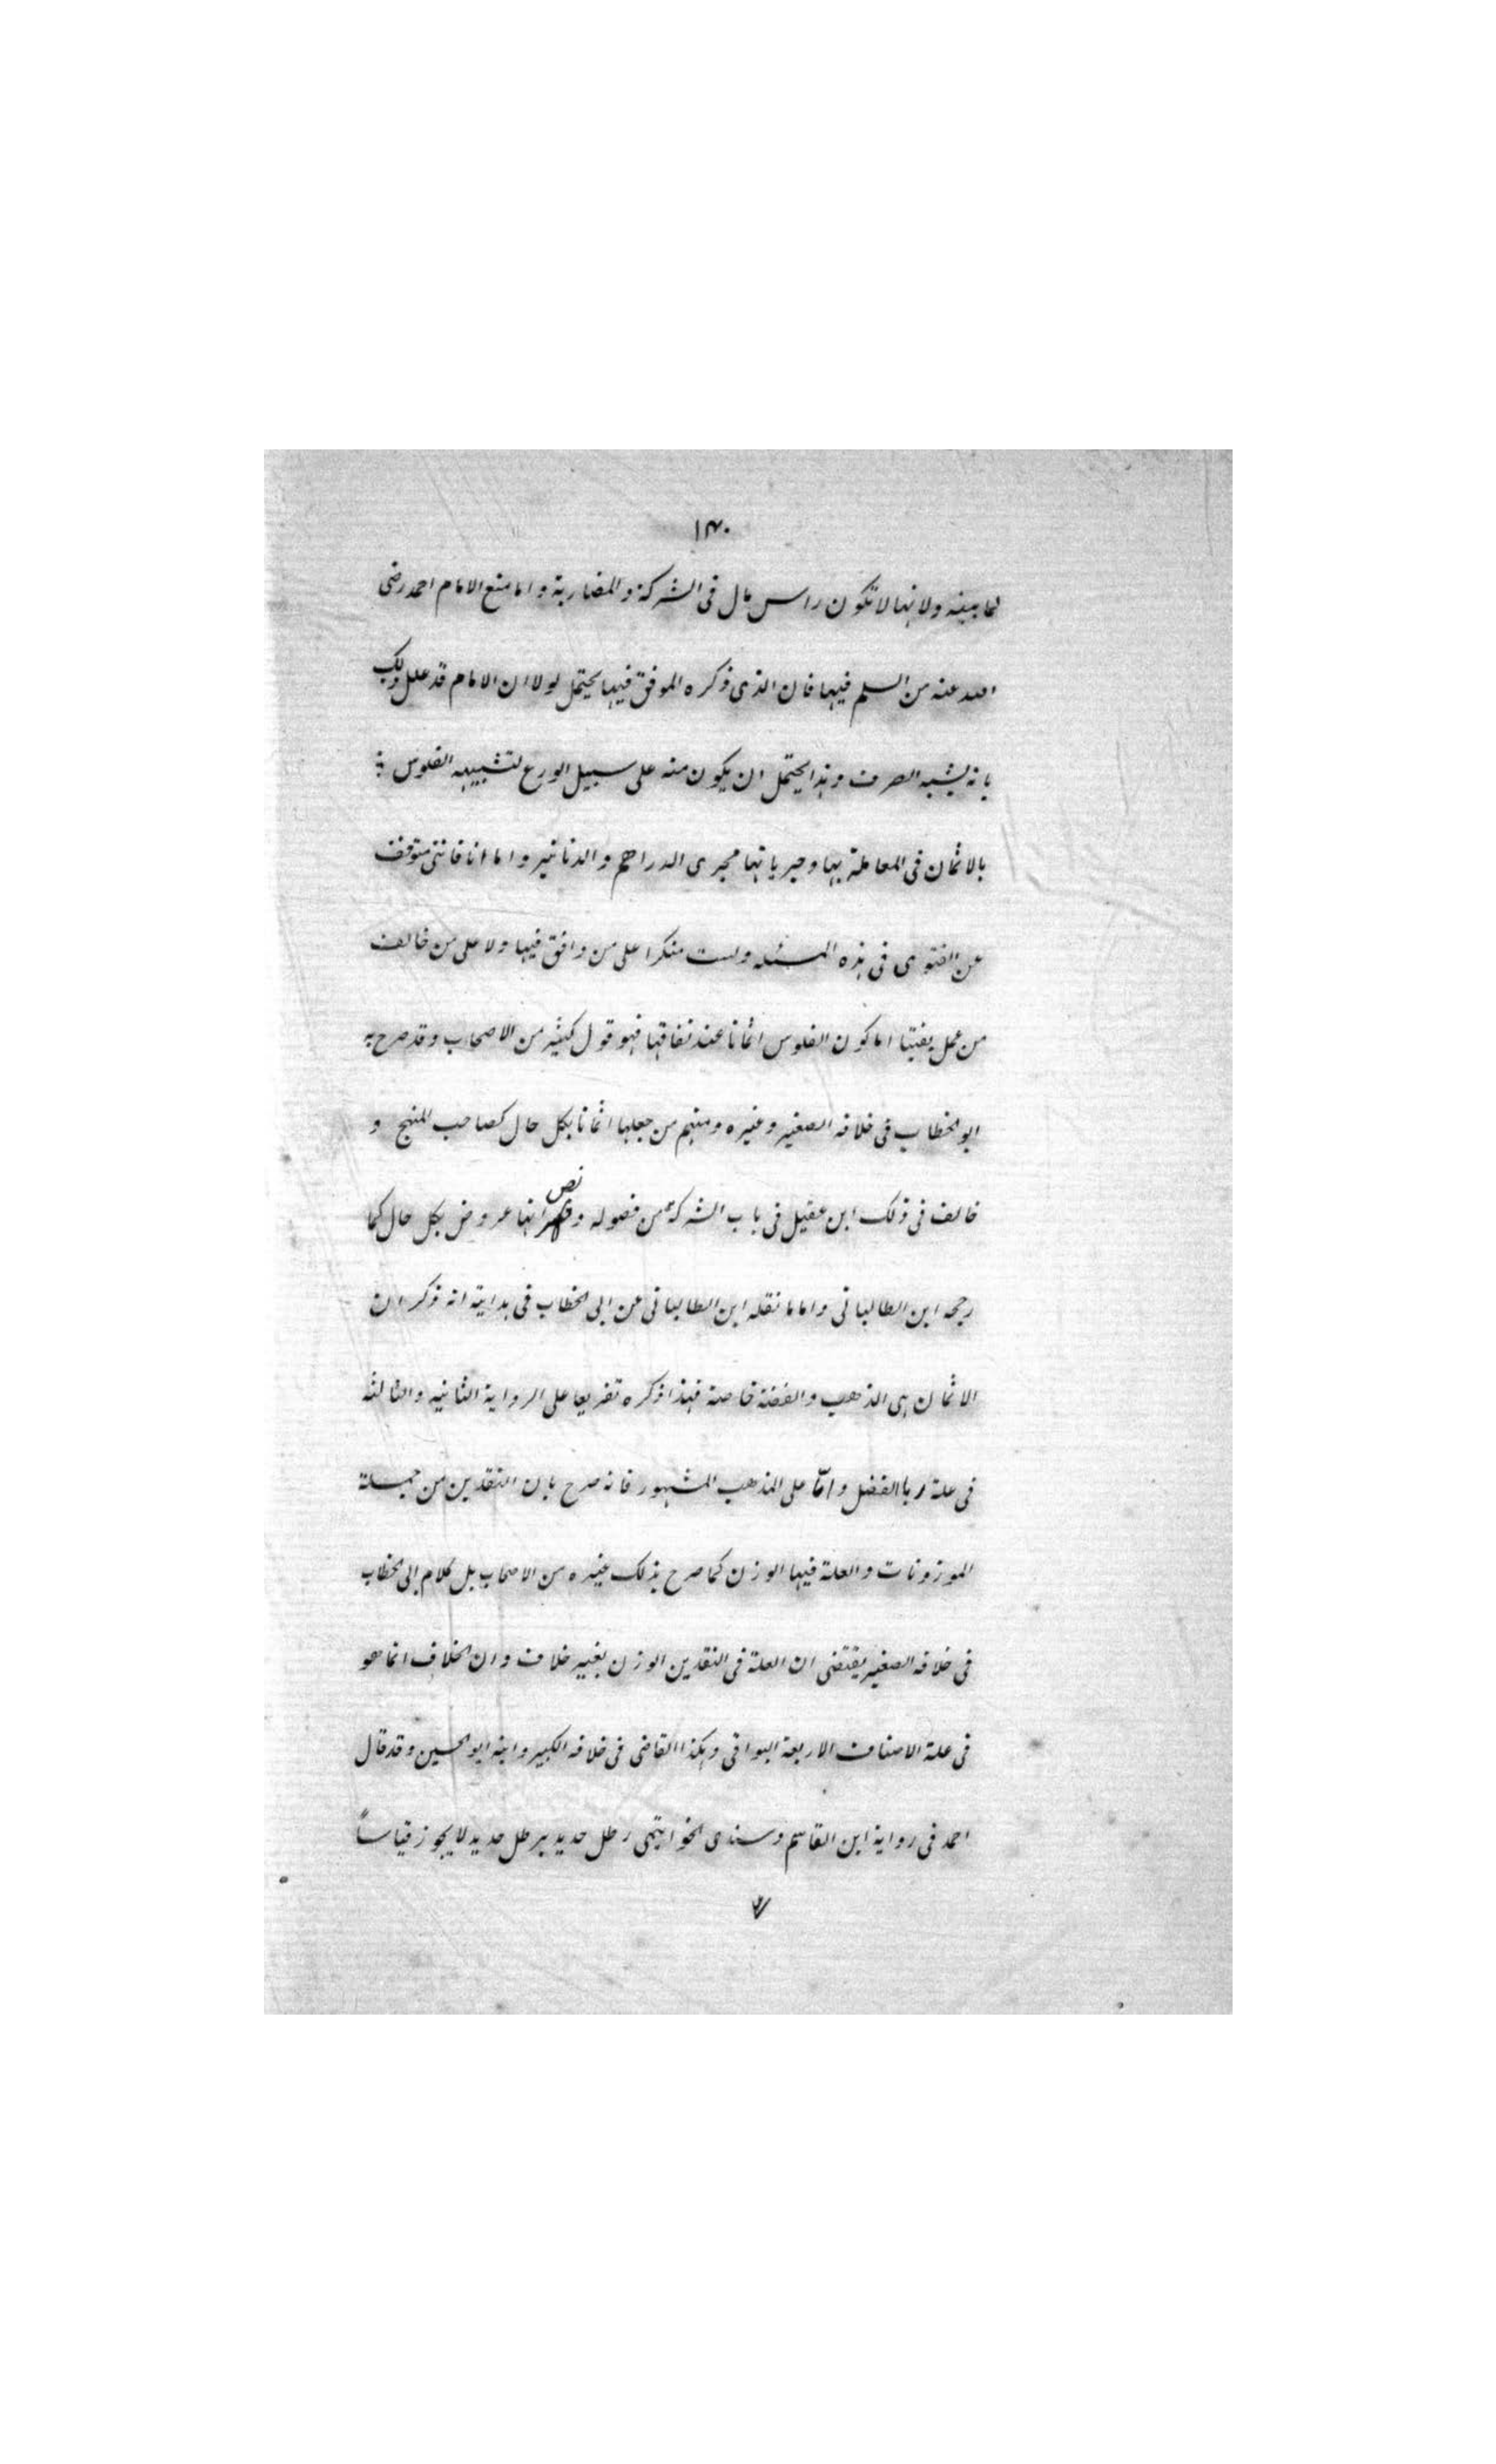 ١٣٠
لما بينه ولانها لا تكون راس مال فى الشركة و المضاربة و اما منع الامام احمد رضى
الله عنه من السلم فيها فان الذى ذكره الموفق فيها يحتمل لولا ان الامام قد علل ذلك
بانه يشبه الصرف وهذا يحتمل ان يكون منه على سبيل الورع لتشبيهه الفلوس
بالاثمان فى المعاملة بها وجريانها مجرى الدراهم و الدنانير و اما انا فاننى متوقف
عن الفتوى فى هذه المسئله ولست منكرا على من وافق فيها ولا على من خالف
من عمل بفتيا اما كون الفلوس اثمانا عند نفاقها فهو قول كثير من الاصحاب وقد صرح به
ابو الخطاب فى خلافه الصغير وغيره ومنهم من جعلها اثمانا بكل حال كصاحب المنهج و
خالف فى ذلك ابن عقيل فى باب الشركة من فصوله و نص انها عروض بكل حال كما
رجحه ابن الطالبانى و اما ما نقله ابن الطالبانى عن ابى الخطاب فى هدايته انه ذكر ان
الاثمان هى الذهب و الفضة خاصة فهذا ذكره تفريعا على الرواية الثانيه و الثالثه
فى علة ربا الفضل و امّا على المذهب المشهور فانه صرح بان النقدين من جملة
الموزونات و العلة فيها الوزن كما صرح بذلك غيره من الاصحاب بل كلام ابى الخطاب
فى خلافه الصغير يقتضى ان العلة فى النقدين الوزن بغير خلاف و ان الخلاف انما هو
فى علة الاصناف الاربعة البواقى وهكذا القاضى فى خلافه الكبير و ابنه ابو الحسين وقد قال
احمد فى رواية ابن القاسم وسندى الخواتيمى رطل حديد برطل حديد لا يجوز قياساً